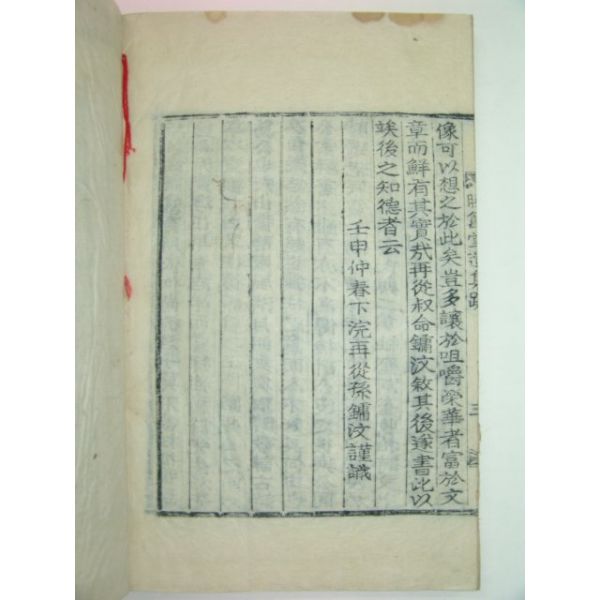 像可以想之於此矣豈多讓於咀嚼榮華者富於文
章而鮮有其實㢤再從叔命鏞汶敘其後遂書此以
竢後之知德者云
壬申仲春下浣再從孫鏞汶謹識
集跋
三